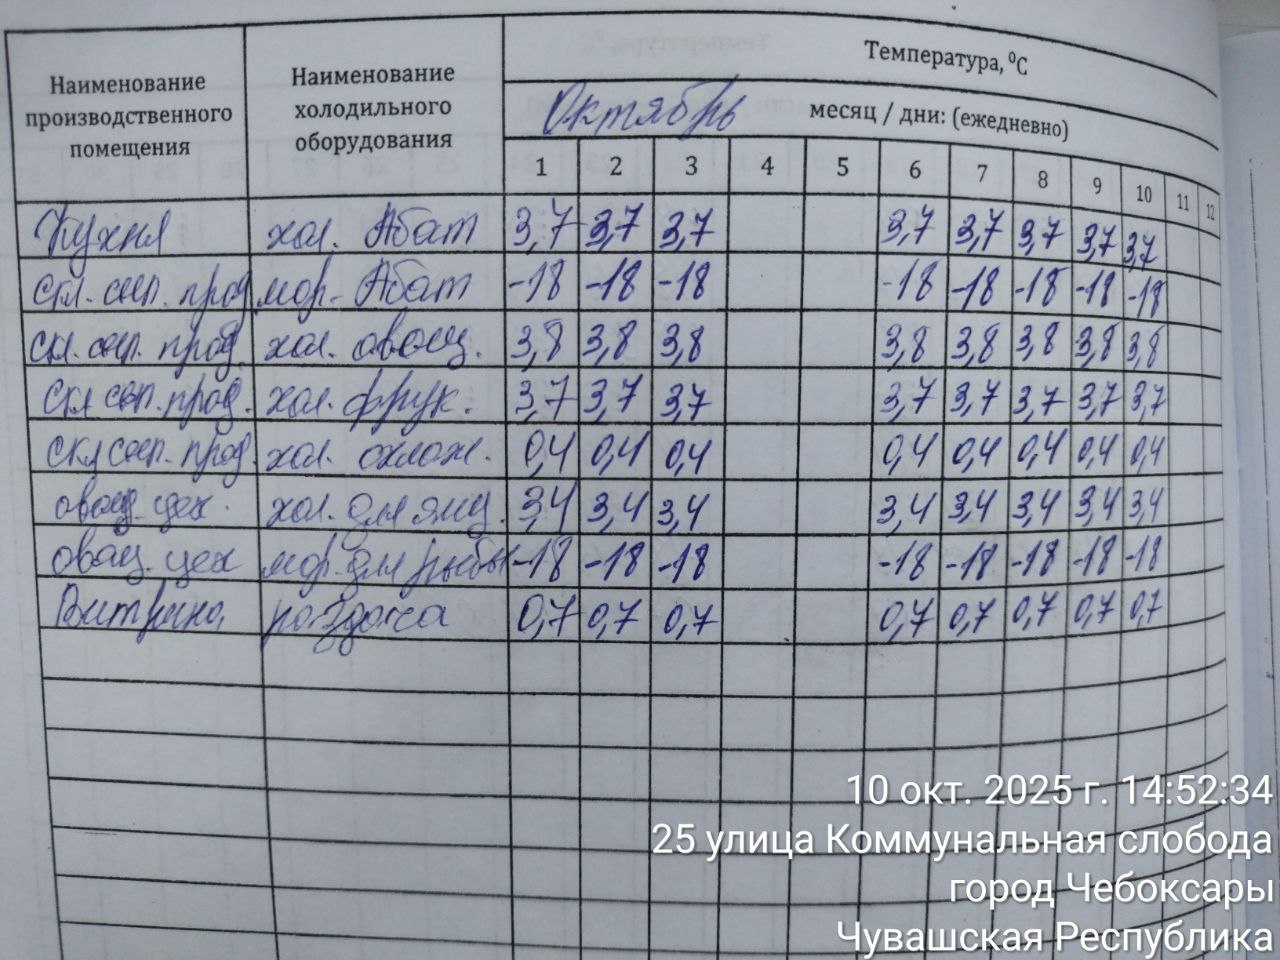 Температура, °C
Наименование производственного помещения
Наименование холодильного оборудования
Октябрь месяц / дни: (ежедневно)
1 2 3 4 5 6 7 8 9 10 11 12
Кухня хол. Абат 3,7 3,7 3,7 3,7 3,7 3,7 3,7 3,7
скл. сып. прод. мор. Абат -18 -18 -18 -18 -18 -18 -18 -18
скл. сып. прод. хол. овощ. 3,8 3,8 3,8 3,8 3,8 3,8 3,8 3,8
скл сып. прод. хол. фрук. 3,7 3,7 3,7 3,7 3,7 3,7 3,7 3,7
скл сып. прод. хол. охлож. 0,4 0,4 0,4 0,4 0,4 0,4 0,4 0,4
овощ. цех хол. для яиц 3,4 3,4 3,4 3,4 3,4 3,4 3,4 3,4
овощ. цех мор. для рыбы -18 -18 -18 -18 -18 -18 -18 -18
Витрина раздача 0,7 0,7 0,7 0,7 0,7 0,7 0,7 0,7
10 окт. 2025 г. 14:52:34
25 улица Коммунальная слобода
город Чебоксары
Чувашская Республика